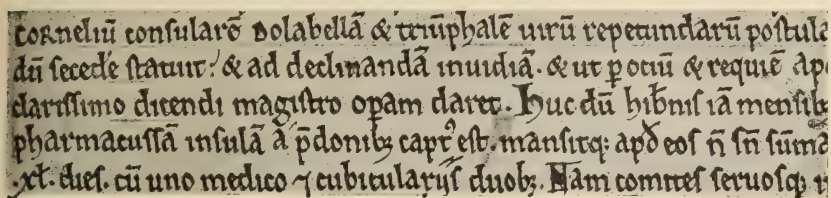 corneliū conſularē dolabellā & triūphalē uirū repetundarū poſtula
dū ſecede ſtatuit: & ad declinandā inuidiā. & ut p ociū & requiē ap
clariſſimo dicendi magiſtro opam daret. Huc dū hibnis iā menſib
pharmacuſſā inſulā a p̄donibꝫ capt᷒ eſt. manſitqꝫ apđ eoſ n̄ ſn̄ ſūma
.xl. dieſ. cū uno medico ⁊ cubiculariis duobꝫ. Nam comiteſ ſeruoſqꝫ